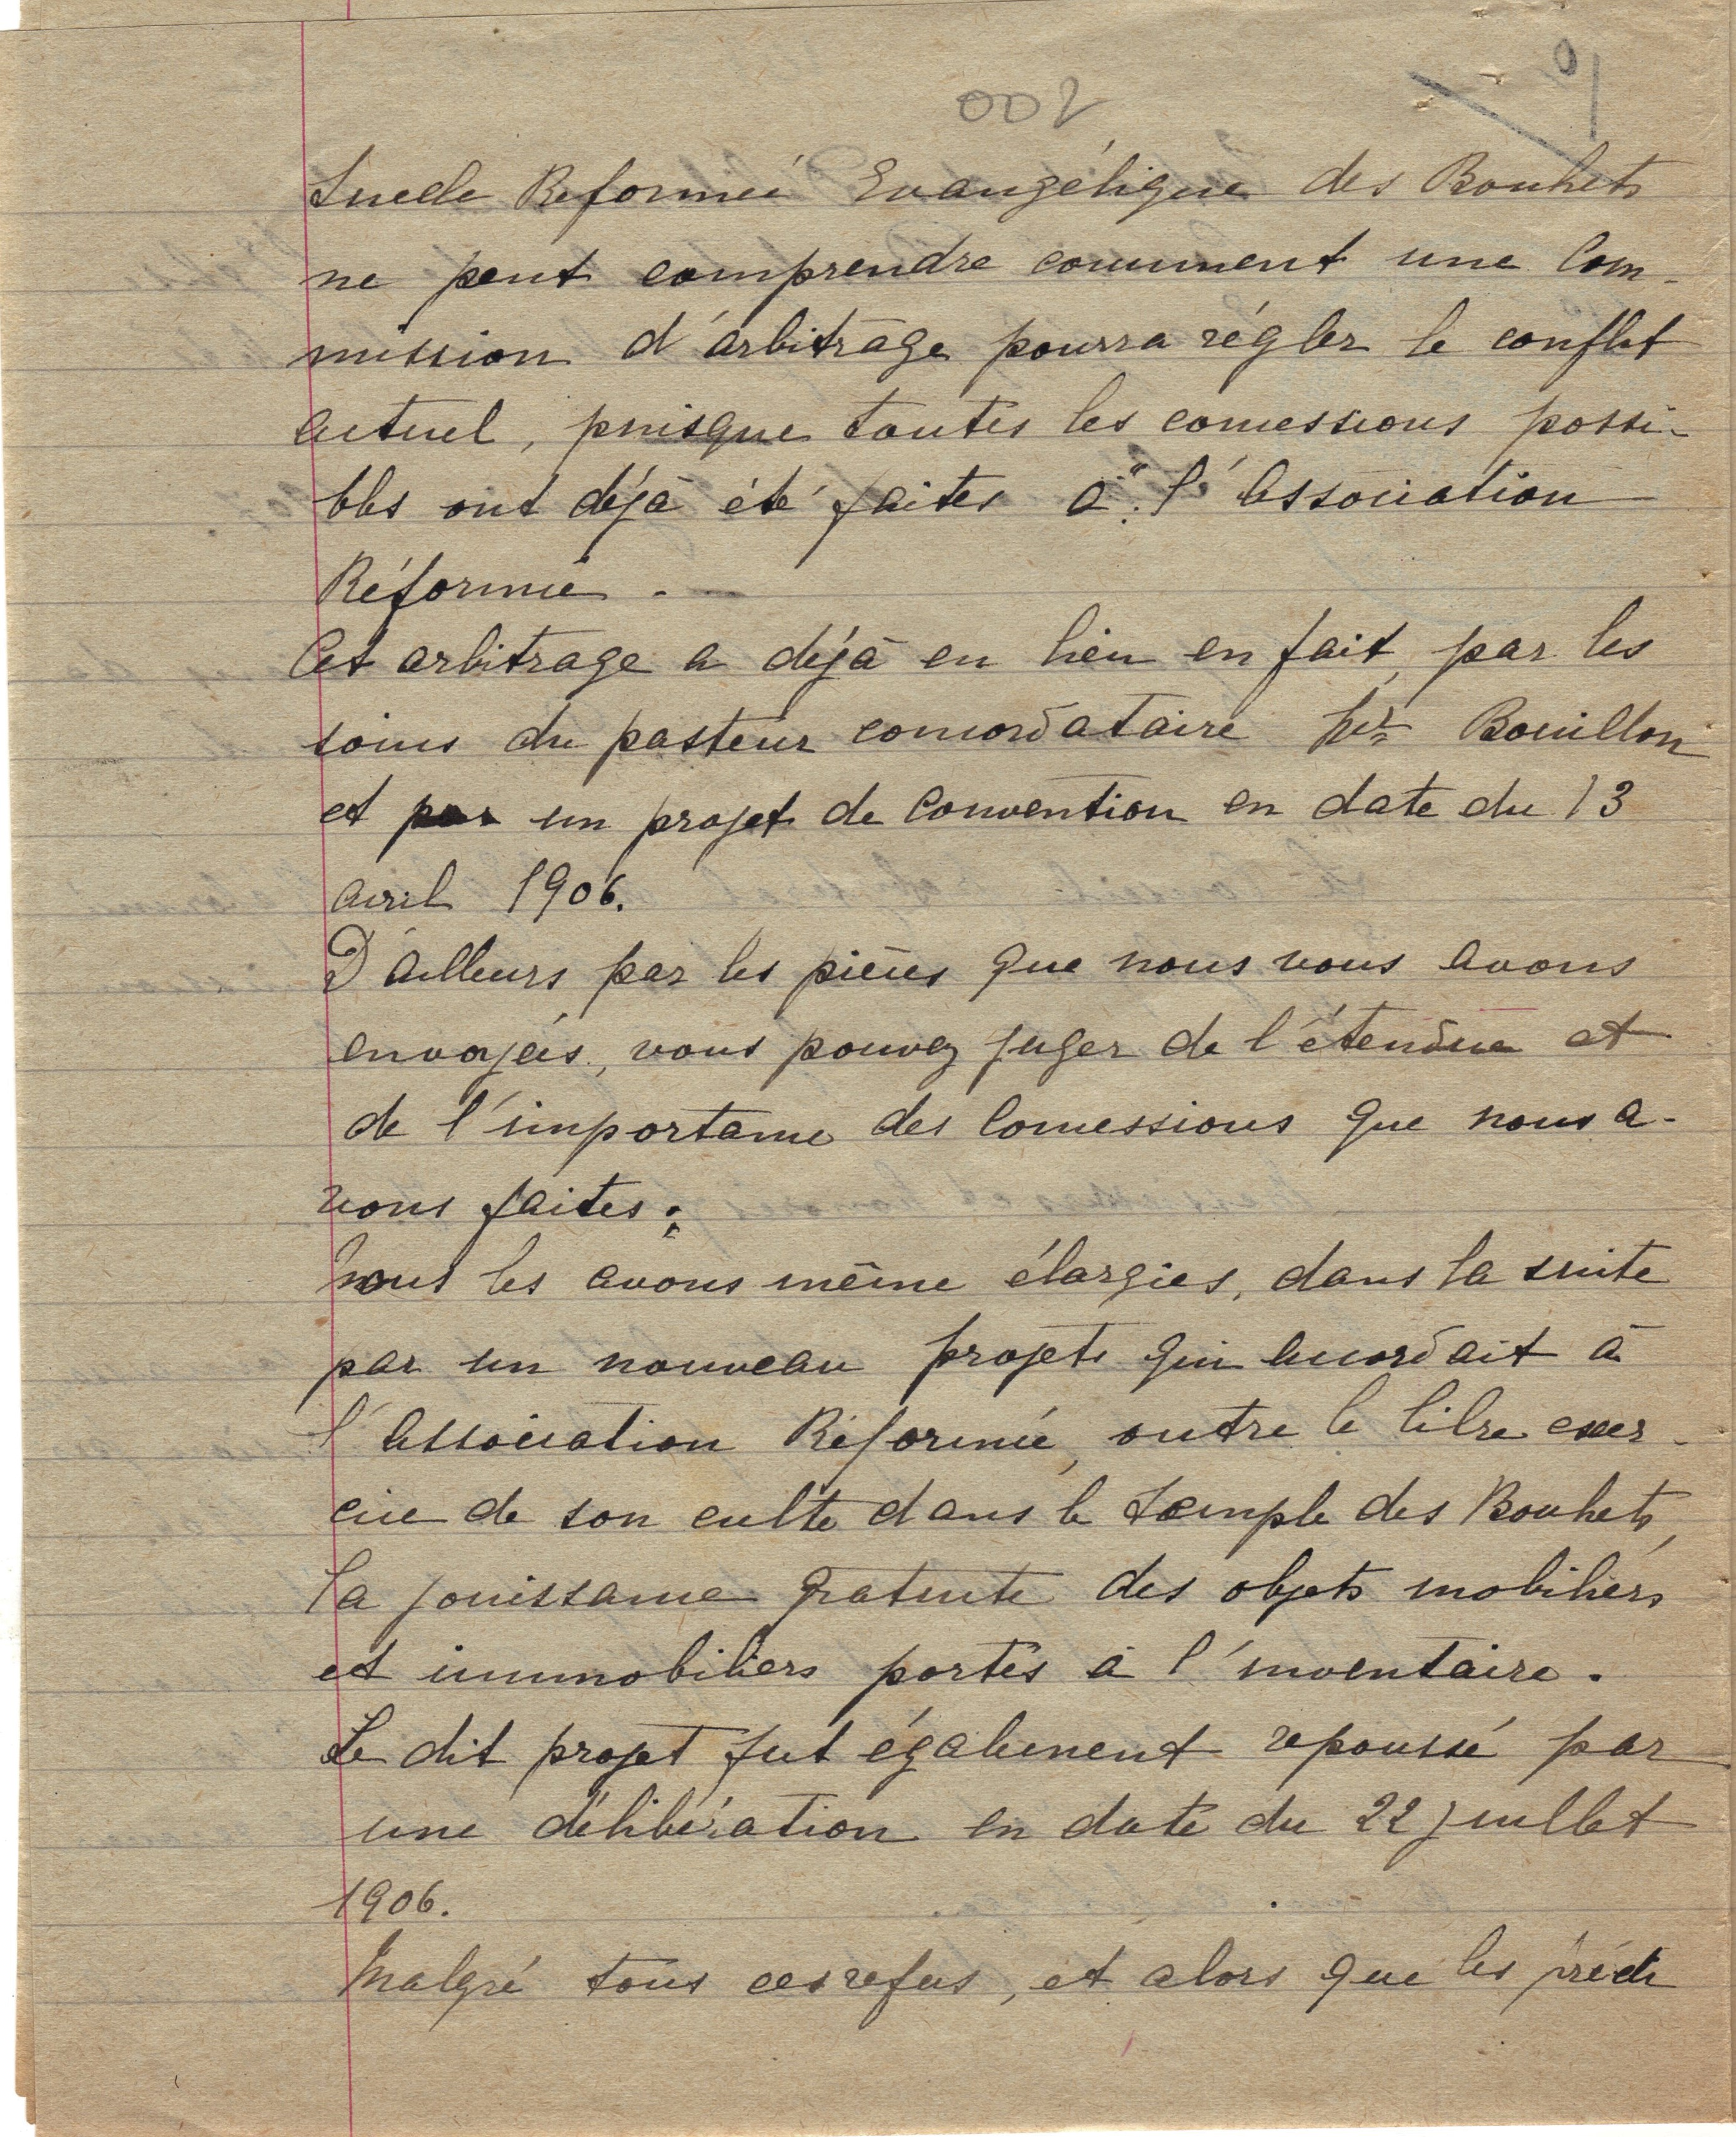 002
tuelle Reformée Evangélique des Bouhets
ne peut comprendre comment une Com-
mission d'arbitrage pourra régler le conflit
actuel, puisque toutes les concessions possi-
bles ont déjà été faites à l'Association
Réformée.-
Cet arbitrage a déjà eu lieu en fait, par les
soins du pasteur concordataire Mr Bouillon
et par un projet de Convention en date du 13
avril 1906.
D'ailleurs par les pièces que nous vous avons
envoyées, vous pouvez juger de l'étendue et
de l'importance des Concessions que nous a-
vons faites.
Nous les avons même élargies, dans la suite
par un nouveau projet qui accordait à
l'Association Réformée, outre le libre exer-
cice de son culte dans le temple des Bouhets,
la jouissance gratuite des objets mobiliers
et immobiliers portés à l'inventaire.
Le dit projet fut également repoussé par
une délibération en date du 22 juillet
1906.
Malgré tous ces refus, et alors que les